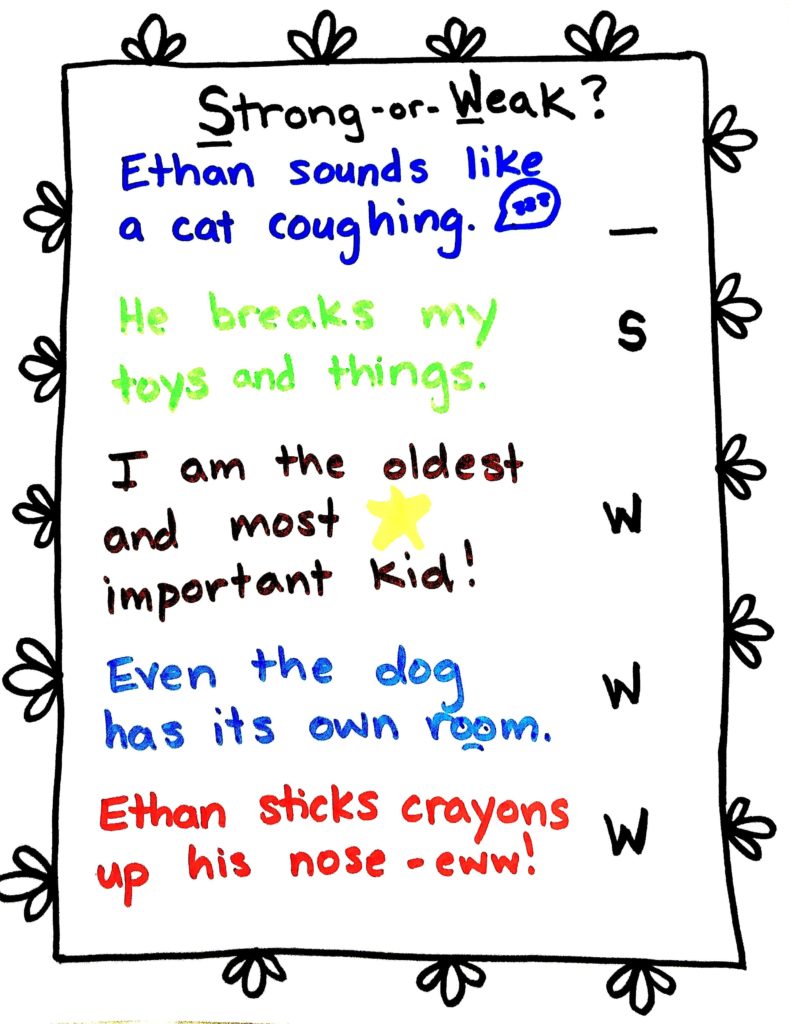 Strong-or-Weak?
Ethan sounds like
a cat coughing. zzz
_
He breaks my
toys and things.
S
I am the oldest
and most
important kid!
W
Even the dog
has its own room.
W
Ethan sticks crayons
up his nose - eww!
W